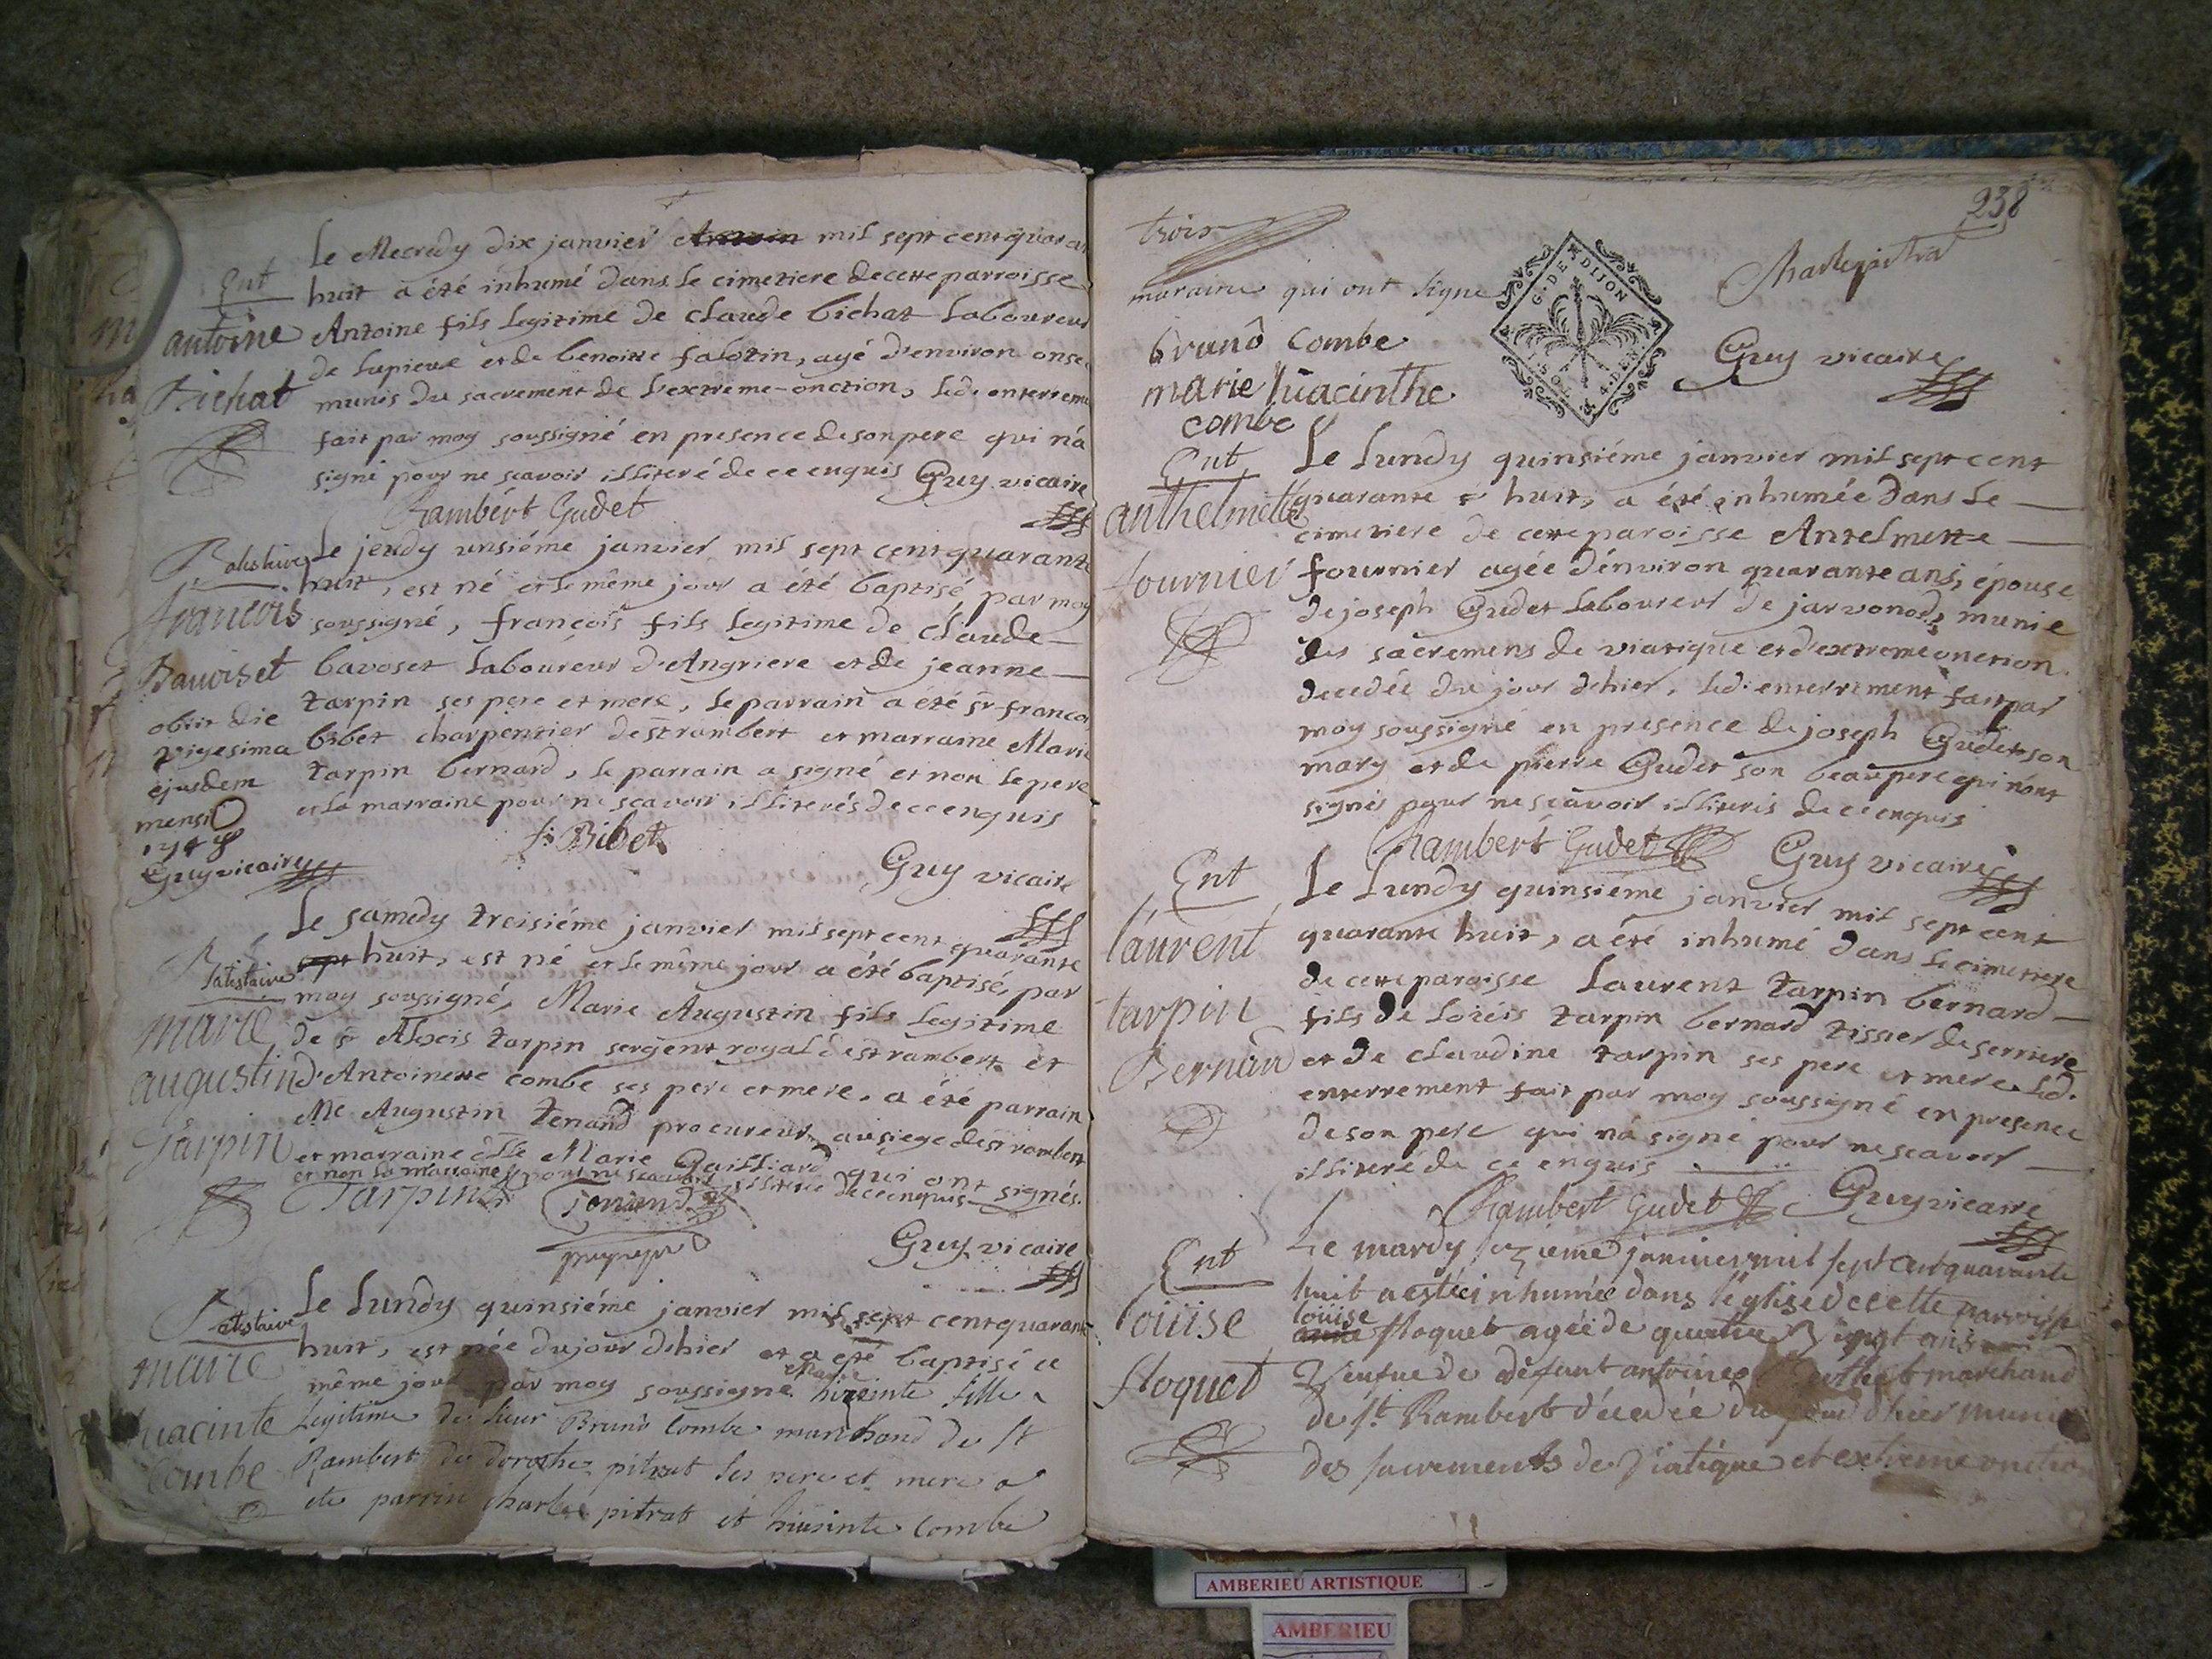 Le Mecredy dix janvier mil sept cent quaran
huit a été inhumé dans le cimetiere de cette parroisse
Antoine fils legitime de claude bichat laboureur
de Lupieue et de benoitte falotin, agé d'environ onse
munis du sacrement de l'extreme-onction, led. enterreme
fait par moy soussigné en presence de son pere qui n'a
signé pour ne scavoir illiteré de ce enquis Guy vicaire
Rambert Gudet
Ent
antoine
Bichat
Le jeudy unsiéme janvier mil sept cent quarante
huit, est né et le même jour a été baptisé, par moy
soussigné, françois fils legitime de claude
bavoset laboureur d'Angriere et de jeanne
tarpin ses pere et mere, le parrain a été sr françoi
bibet charpentier de st rambert et marraine Marie
tarpin bernard, le parrain a signé et non le pere
et la marraine pour ne scavoir illiterés de ce enquis
f. Bibet
Guy vicaire
Batistaire
françois
Bauoiset
obiit die
vigesima
ejusdem
mensis
1748
Guy vicaire
Le samedy treisiéme janvier mil sept cent quarante
sept huit, est né et le même jour a été baptisé, par
moy soussigné, Marie Augustin fils legitime
de sr Alexis tarpin sergent royal de st rambert et
d'Antoinette combe ses pere et mere. a été parrain
Me Augustin tenand procureur au siege de st rambert
et marraine dlle Marie Gailliard qui ont signés.
et non la marraine pour ne scavoir illiterée de ce enquis
Tarpin
Tenand
Guy vicaire
Batistaire
marie
augustin
Tarpin
Le Lundy quinsiéme janvier mil sept cent quarante
huit, est née du jour d'hier et a été baptisé ce
même jour par moy soussigné marie hiacinte fille
Legitime de sieur Bruno Combe marchand de st
Rambert de dorothe pitrat ses pere et mere a
ete parrin charle pitrat et hiasinte Combe
Batistaire
marie
huacinte
Combe
238
trois
maraine qui ont signe
Charle pitrat
brunô combe
marie huacinthe
combe
G. DE DIJON
1 SOL 4 DEN.
Guy vicaire
Ent
anthelmette
fournier
Le Lundy quinsiéme janvier mil sept cent
quarante & huit, a été inhumée dans le
cimetiere de cette paroisse Antelmette
fournier agée d'environ quarante ans, épouse
de joseph Gudet laboureur de jarvonod, munie
des sacremens de viatique et d'extreme onction
decedée du jour d'hier, led. enterrement fait par
moy soussigné en presence de joseph Gudet son
mary et de pierre Gudet son beaupere qui n'ont
signés pour ne scavoir illiterés de ce enquis
Rambert Gudet Guy vicaire
Ent
laurent
tarpin
Bernard
Le Lundy quinsiéme janvier mil sept cent
quarante huit, a été inhumé dans le cimetiere
de cette paroisse Laurent tarpin bernard
fils de loüis tarpin bernard tissier de serriere
et de claudine tarpin ses pere et mere. led.
enterrement fait par moy soussigné en presence
de son pere qui n'a signé pour ne scavoir
illiteré de ce enquis
Rambert Gudet Guy vicaire
Ent
loüise
floquet
Le mardy sezieme janvier mil sept cent quarante
huit a estée inhumée dans l'eglise de cette parroisse
loüise
floquet agée de quatre vingt ans
veufue de defunt antoine marchand
de st Rambert décedée du jour d'hier munie
des sacrements de viatique et extreme onction
AMBERIEU ARTISTIQUE
AMBERIEU